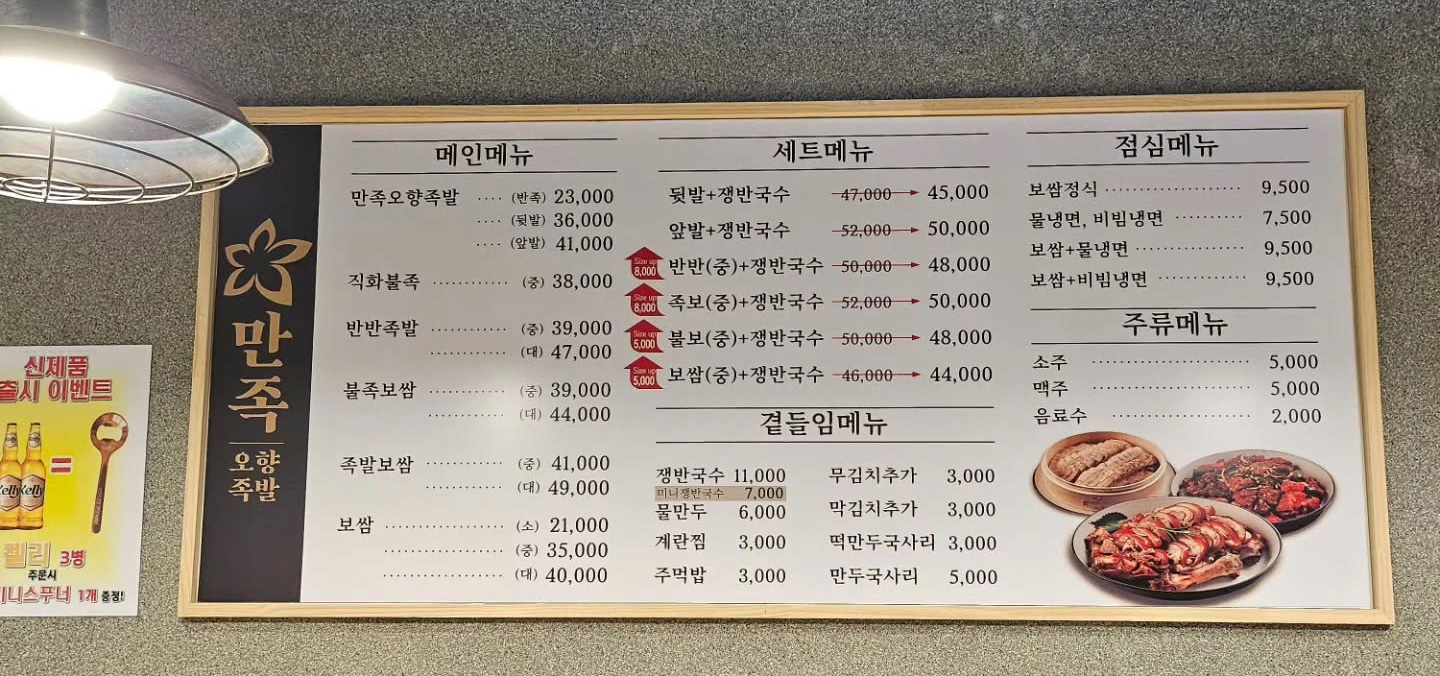 만족
오향
족발
메인메뉴
만족오향족발 ···· (반족) 23,000
···· (뒷발) 36,000
···· (앞발) 41,000
직화불족 ············ (중) 38,000
반반족발 ············ (중) 39,000
············ (대) 47,000
불족보쌈 ············ (중) 39,000
············ (대) 44,000
족발보쌈 ············ (중) 41,000
············ (대) 49,000
보쌈 ·················· (소) 21,000
·················· (중) 35,000
·················· (대) 40,000
세트메뉴
뒷발+쟁반국수 47,000 → 45,000
앞발+쟁반국수 52,000 → 50,000
Size up 8,000 반반(중)+쟁반국수 50,000 → 48,000
Size up 8,000 족보(중)+쟁반국수 52,000 → 50,000
Size up 5,000 불보(중)+쟁반국수 50,000 → 48,000
Size up 5,000 보쌈(중)+쟁반국수 46,000 → 44,000
곁들임메뉴
쟁반국수 11,000 무김치추가 3,000
미니쟁반국수 7,000
물만두 6,000 막김치추가 3,000
계란찜 3,000 떡만두국사리 3,000
주먹밥 3,000 만두국사리 5,000
점심메뉴
보쌈정식 ···················· 9,500
물냉면, 비빔냉면 ·········· 7,500
보쌈+물냉면 ················ 9,500
보쌈+비빔냉면 ············· 9,500
주류메뉴
소주 ······················· 5,000
맥주 ······················· 5,000
음료수 ···················· 2,000
신제품
출시 이벤트
Kelly Kelly
=
켈리 3병
주문시
미니스푸너 1개 증정!